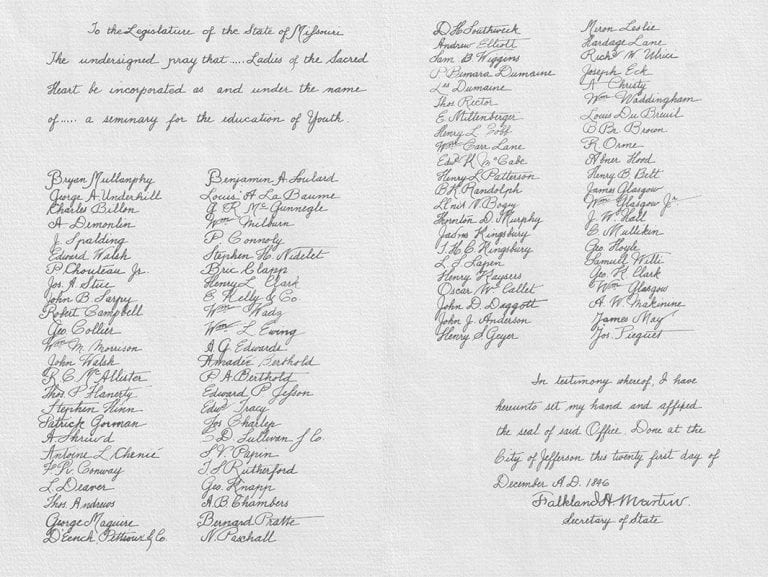 To the Legislature of the State of Missouri
The undersigned pray that ..... Ladies of the Sacred
Heart be incorporated as and under the name
of ..... a seminary for the education of Youth.
Bryan Mullanphy
George A. Underhill
Charles Billon
A Demontin
J. Spalding
Edward Walsh
P. Chouteau Jr.
Jos. A Stice
John B Sarpy
Robert Campbell
Geo. Collier
Wm M. Morrison
John Walsh
R C McAllister
Thos. P Flanerty
Stephen Flinn
Patrick Gorman
A
Antoine L. Chenie
Conway
L Deaver
Thos. Andrews
George Maguire
& Co.
Benjamin A. Soulard
Louis A La Baume
G R McGunnegle
Wm Milburn
P Connoly
Stephen H. Nidelet
Bric Clapp
Henry L. Clark
E. Kelly & Co
Wm Wadz
Wm L Ewing
A G. Edwards
Amadée Berthold
P A. Berthold
Edward P. Jesson
Edwd Tracy
Jos Charles
D. Sullivan & Co.
S V Papin
T S Rutherford
Geo. Knapp
A B Chambers
Bernard Pratte
N Paschall
D H Southwick
Andrew Elliott
Sam B Wiggins
P Bemara Dumaine
Ls Dumaine
Thos Rector
E. Miltenberger
Henry L
Wm Carr Lane
Edwd K McCabe
Henry L Patterson
B H Randolph
V. Bogy
Thornton D. Murphy
Kingsbury
J. H. C. Kingsbury
L S Lapen
Henry Kaysers
Oscar W Collet
John D Daggott
John J. Anderson
Henry S Geyer
Miron Leslie
Hardage Lane
Richd W Ulrici
Joseph Eck
A Christy
Wm Waddingham
Louis Du Breuil
B. Br Brown
R Orme
Abner Hood
Henry B Belt
James Glasgow
Wm Glasgow Jr
J. W Hall
C Mullikin
Geo. Hoyle
Samuel Willi
Geo. R Clark
Wm Glasgow
A. W. Makinine
James May
Jos. Piegues
In testimony whereof, I have
hereunto set my hand and affixed
the seal of said Office. Done at the
City of Jefferson this twenty first day of
December A.D. 1846
Falkland H. Martin.
Secretary of State